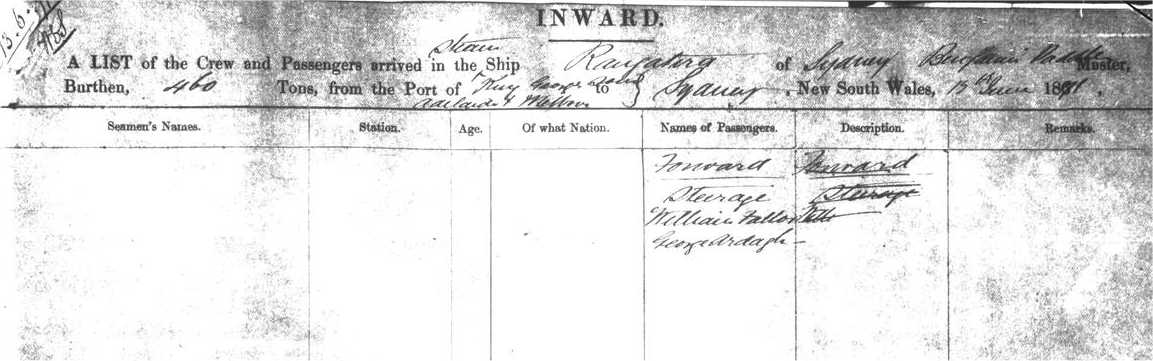 13.6.
INWARD.
steam
A LIST of the Crew and Passengers arrived in the Ship Rangatira of Sydney Benjamin Master,
Burthen, 460 Tons, from the Port of King George Sound to Sydney, New South Wales, 13th June 1871.
Adelaide & Melbou
Seamen's Names. Station. Age. Of what Nation. Names of Passengers. Description. Remarks.
Forward Forward
Steerage Steerage
William Fallon
George Ardagh